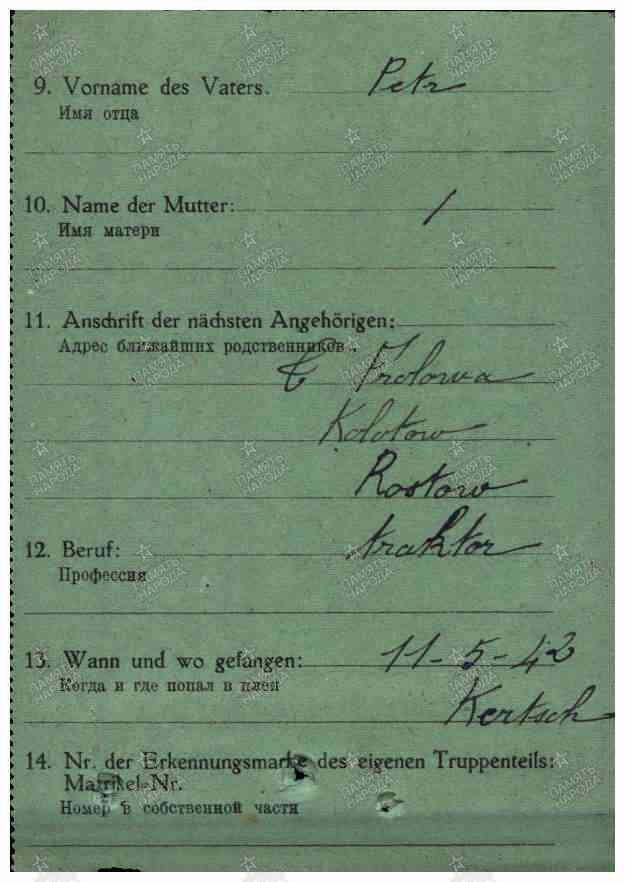 9. Vorname des Vaters. Petr
Имя отца
10. Name der Mutter: /
Имя матери
11. Anschrift der nächsten Angehörigen:
Адрес ближайших родственников.
Frolowa
Kolotow
Rostow
12. Beruf: traktor
Профессия
13. Wann und wo gefangen: 11-5-42
Когда и где попал в плен
Kertsch
14. Nr. der Erkennungsmarke des eigenen Truppenteils:
Matrikel-Nr.
Номер в собственной части
ПАМЯТЬ
НАРОДА